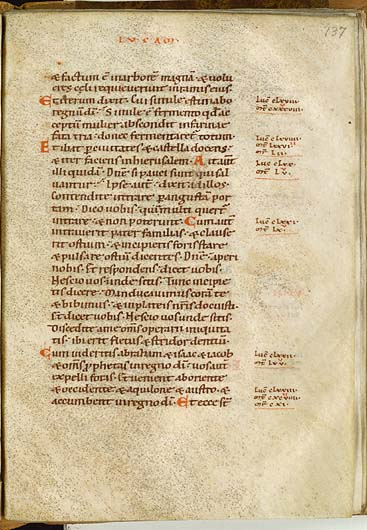 LUCAM
137
& factum ē inarborem magnā & volu
cres cęli requieverunt inramis eius.
Et iterum dixit. Cui simile estimabo
regnū dī. Simile ē fermento qd̄ ac
ceptū mulier abscondit infarinae
sata tria donec fermentaret totum.
Et ibat per civitates & castella docens
& iter faciens inhierusalem. Ait aut̄
illi quidā. Dn̄e si pauci sunt qui sal
vantur. Ipse aut̄ dixit adillos.
Contendite intrare per angustā por
tam. Dico vobis quia multi quer̄t
intrare & non poterunt. Cum aut̄
intraverit pater familias & clause
rit ostium. & incipietis foris stare
& pulsare ostiū dicentes. Dn̄e aperi
nobis. Et respondens dicet vobis.
Nescio vos unde sitis. Tunc incipie
tis dicere. Manducavimus corā te
& bibimus & inplateis nr̄is docuisti.
Et dicet vobis. Nescio vos unde sitis.
Discedite ame om̄s operarii iniquita
tis. ibi erit fletus & stridor dentiū.
Cum videritis abraham & isaac & iacob
& om̄s pphetas inregno dī. vos aut̄
expelli foras. Et venient aboriente
& occidente & aquilone & austro. &
accumbent inregno dī. Et ecce st̄
Luc̄ clxviii.
Luc̄ clxx.
mt̄ lv.
Luc̄ clxxi
Luc̄ clxxii
Luc̄ clxxiii